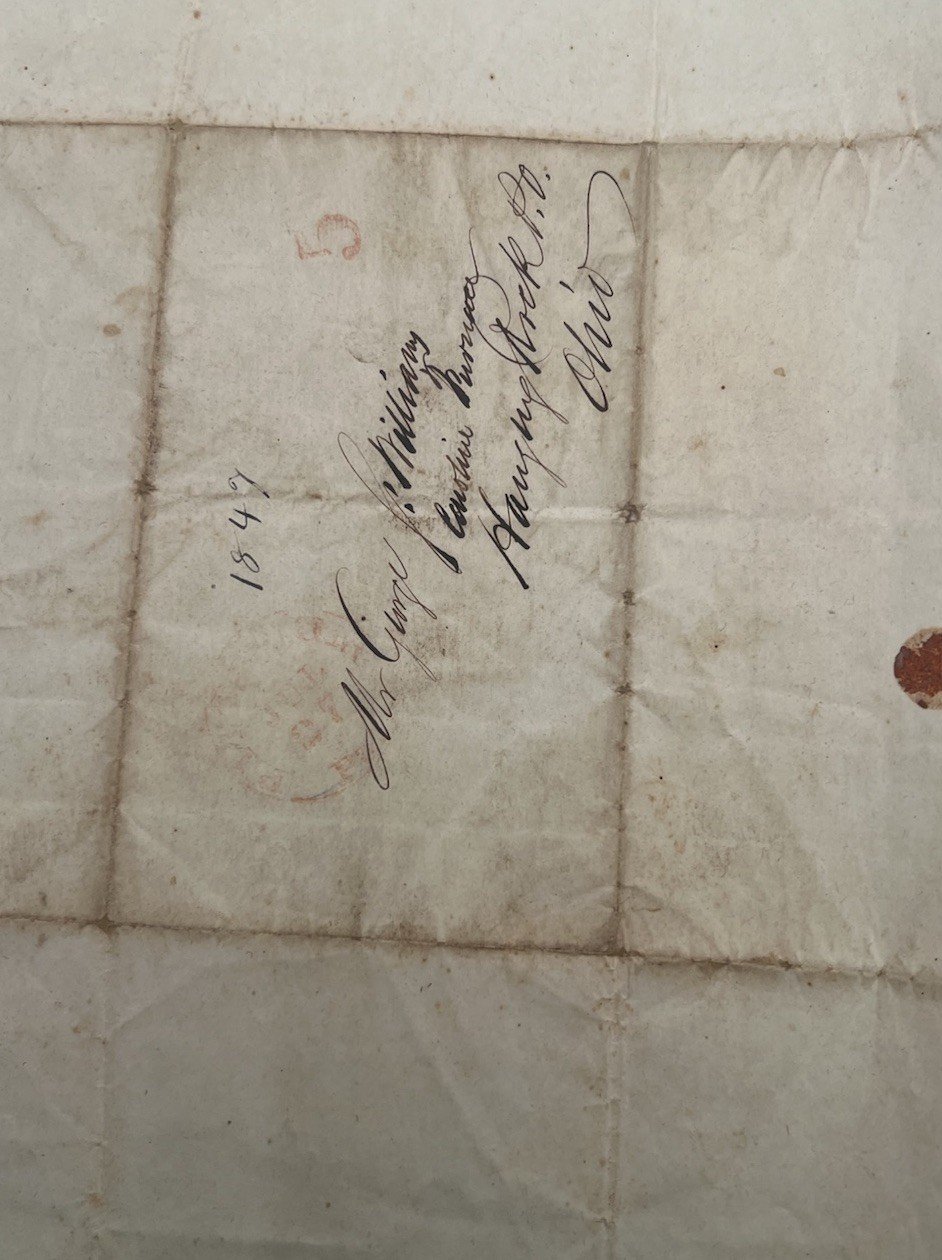 5
1847
Mr George S. Williams
Furnace
Hanging Rock P.O.
Ohio